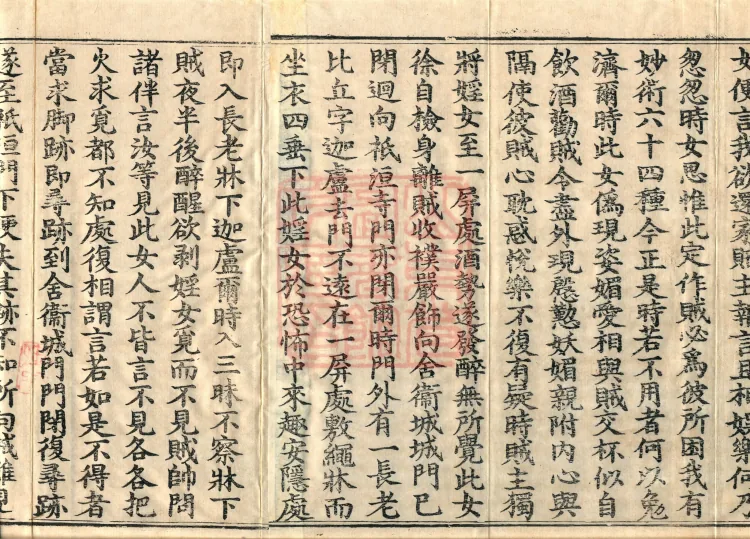 女便言我欲還家賊主報言且相娛樂何乃
忽忽時女思惟此定作賊必為彼所困我有
妙術六十四種今正是時若不用者何以免
濟爾時此女偽現姿媚愛相與賊交杯似自
飲酒勸賊令盡外現慇懃妖媚親附內心與
隔使彼賊心耽惑悅樂不復有疑時賊主獨
將婬女至一屏處酒勢遂發醉無所覺此女
徐自撿身離賊收襆嚴飾向舍衛城城門已
閉迴向祇洹寺門亦閉爾時門外有一長老
比丘字迦盧去門不遠在一屏處敷繩牀而
坐衣四垂下此婬女於恐怖中來趣安隱處
即入長老牀下迦盧爾時入三昧不察牀下
賊夜半後醉醒欲剥婬女覓而不見賊帥問
諸伴言汝等見此女人不皆言不見各各把
火求覓都不知處復相謂言若如是不得者
當求脚跡即尋跡到舍衛城門門閉復尋跡
遂至祇洹門下便失其跡不知所向賊雖見